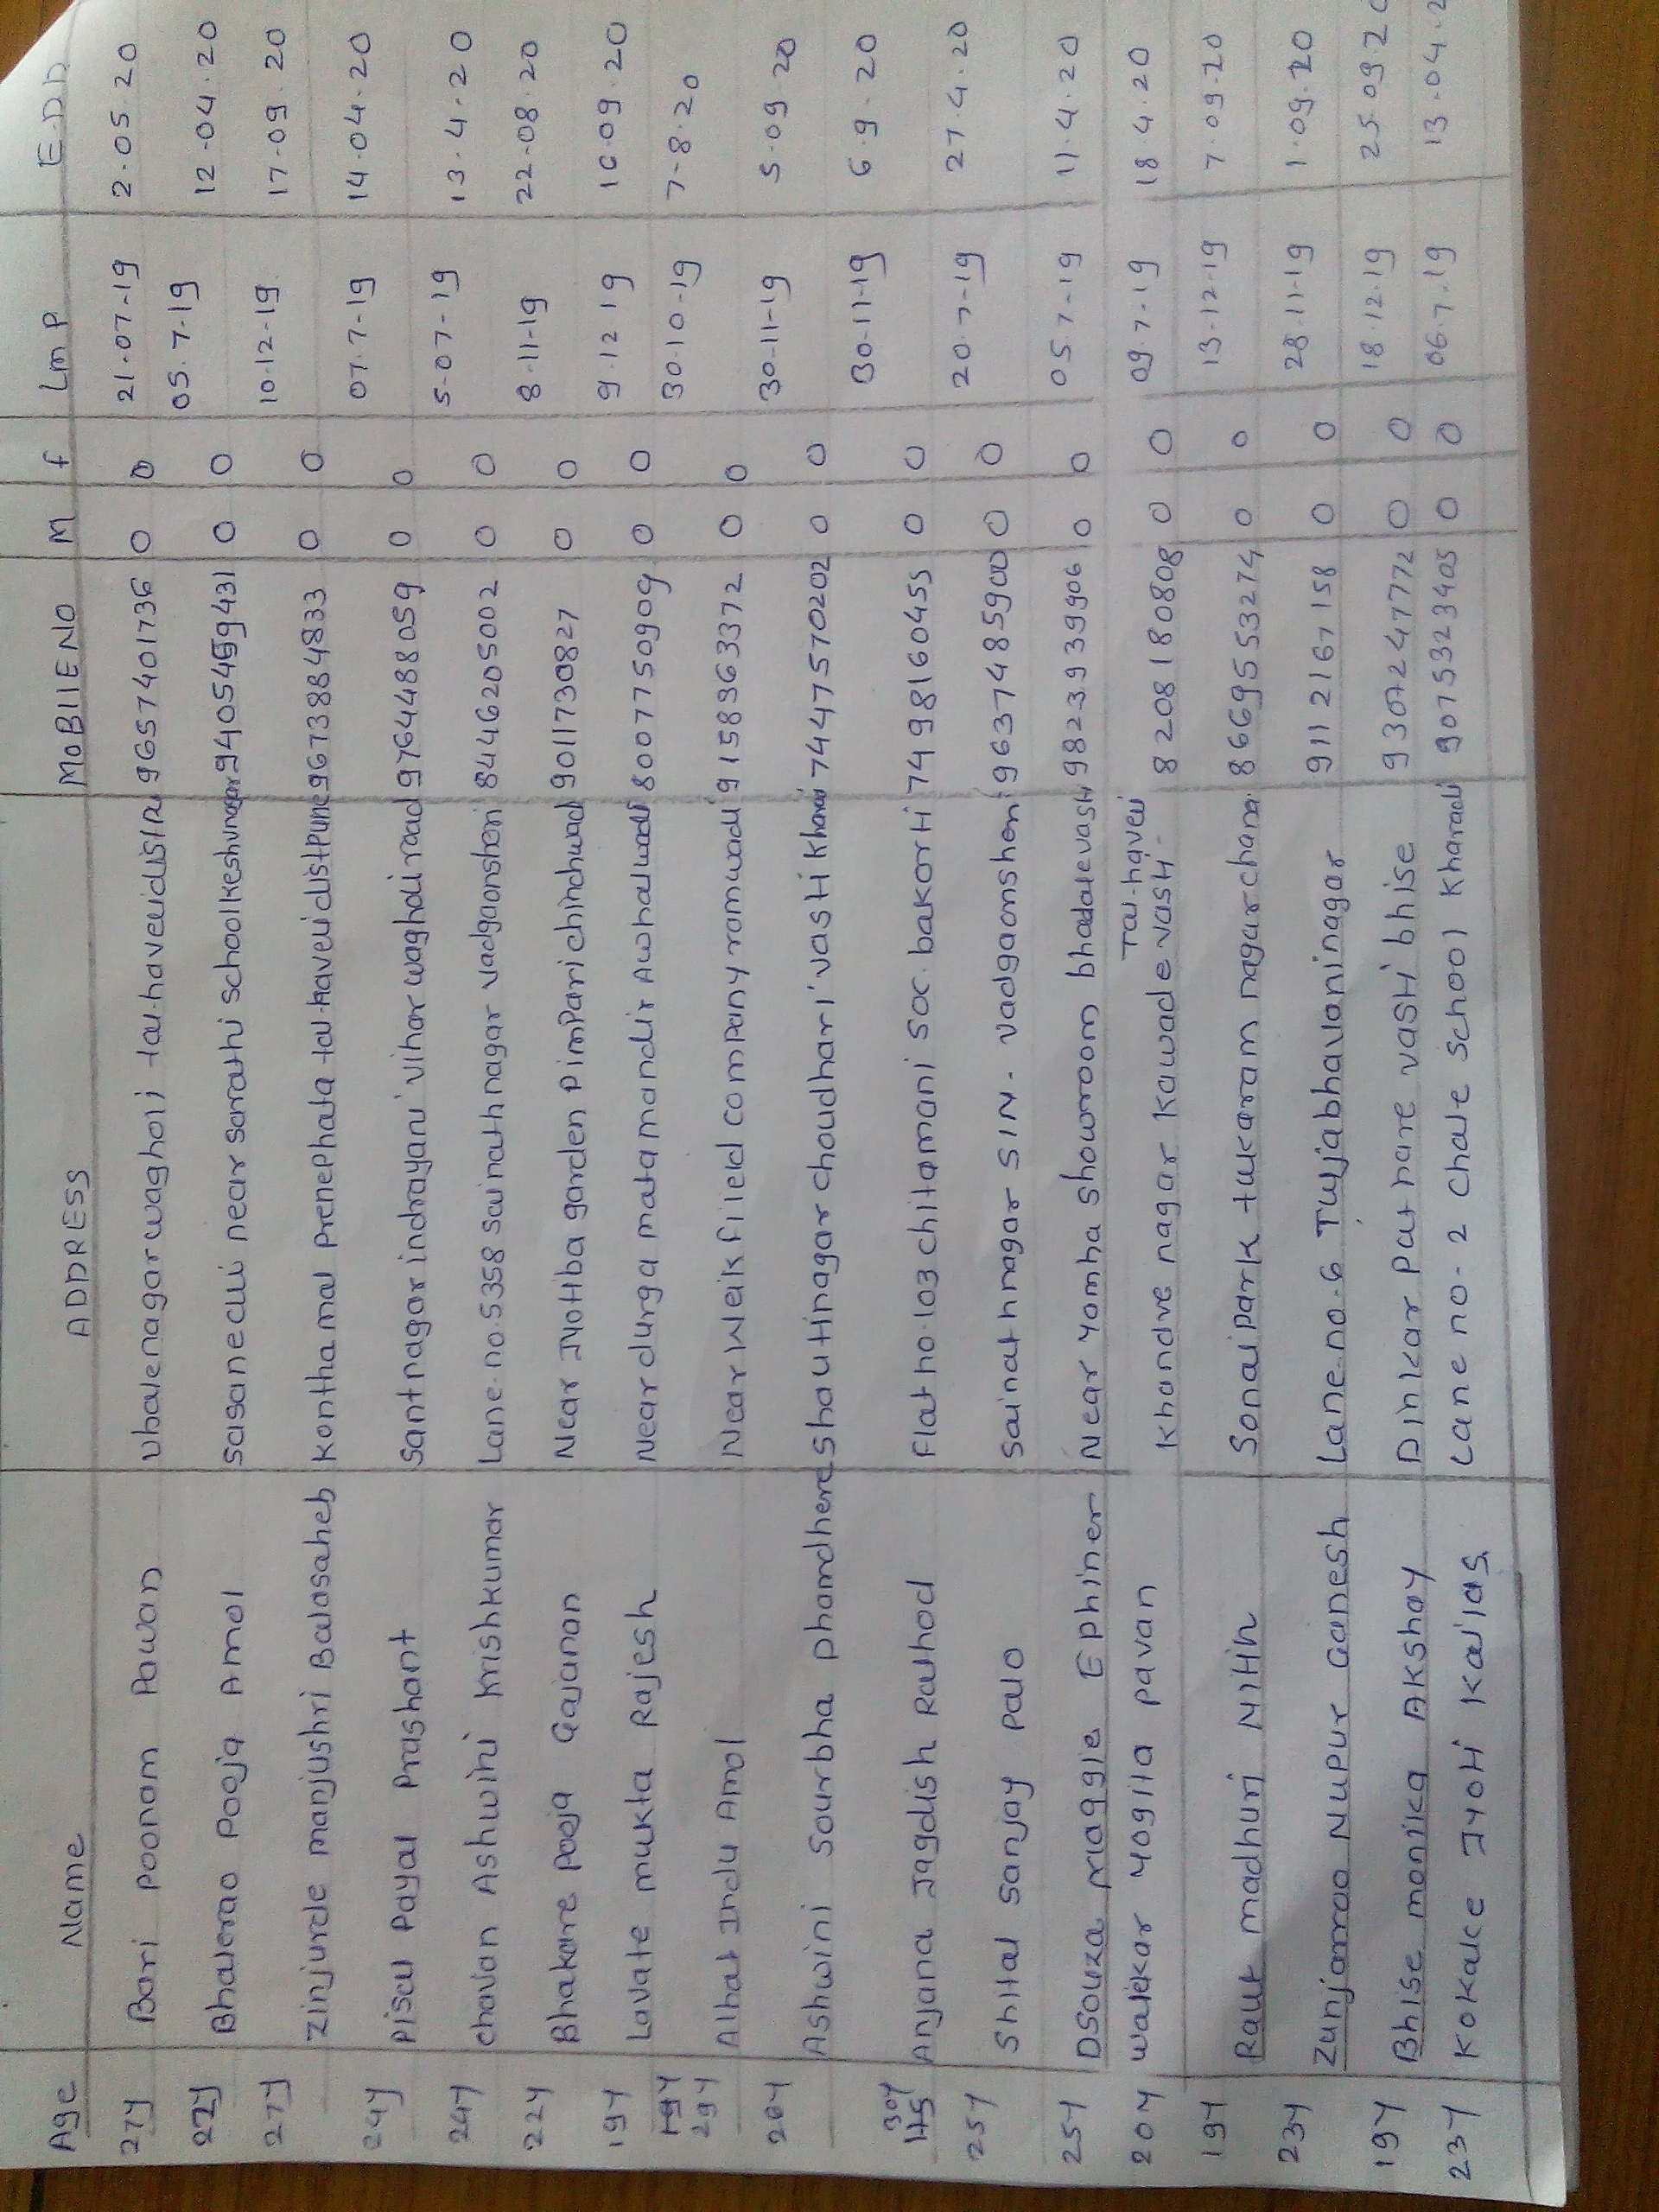 Age Name ADDRESS MOBIIENO M f LMP E.D.D
27y Bari poonam Pawan ubalenagarwagholi tal-havelidist 9657401736 0 0 21-07-19 2.05.20
22y Bhalerao Pooja Amol Sasanedui near sarathi school keshvnagar 9405459431 0 0 05.7-19 12.04.20
27y Zinjurde manjushri Balasaheb Kontha mal Prenephata tal-haveli distpune 9673884833 0 0 10.12-19 17.09.20
24y Pisal Payal Prashant Santnagar indrayani vihar wagholi road 9764488059 0 0 07.7-19 14.04.20
24y chavan Ashwini Krishkumar Lane.no.5358 Sainath nagar vadgaonsheri 8446205002 0 0 5-07-19 13.4.20
22y Bhakare Pooja Gajanan Near Jyotiba garden Pimpari chinchwad 9011730827 0 0 8-11-19 22.08.20
19y Lavate mukta Rajesh Near durga mata mandir Awhalwadi 8007750909 0 0 9.12 19 16.09.20
29y Alhat Indu Amol Near Weikfiield company romwadi 9158963372 0 0 30.10-19 7-8.20
20y Ashwini Sourbha phamdhere Shautinagar choudhari vasti kharadi 7447570202 0 0 30-11-19 5.09.20
30y Anjana Jagdish Rathod Flat no.103 chitamani soc. bakorti 7498160455 0 0 30-11-19 6.9.20
25y Shital Sanjay Palo Sainath nagar SIN. vadgaonsheri 9637485900 0 0 20.7-19 27.4.20
25y Dsouza Maggie Ephiner Near yomha showroom bhadalevasti 9823939906 0 0 05.7-19 11.4.20
20y Walekar Yogita pavan Khandve nagar Kawade vasti. Tal-haveli 8208180808 0 0 09.7-19 18.4.20
19y Raut madhuri Nitin Sonai Park tukaram nagar chana 8669553274 0 0 13-12-19 7.09.20
23y Zunjarrao Nupur Ganesh Lane.no.6 Tujabhavaninagar 9112167158 0 0 28.11-19 1.09.20
19y Bhise monika Akshay Dinkar Pathare vasti bhise 9307247772 0 0 18.12.19 25.09.20
23y Kokate Jyoti Kailas. Lane no-2 chate school kharadi 9075323405 0 0 06.7.19 13.04.2